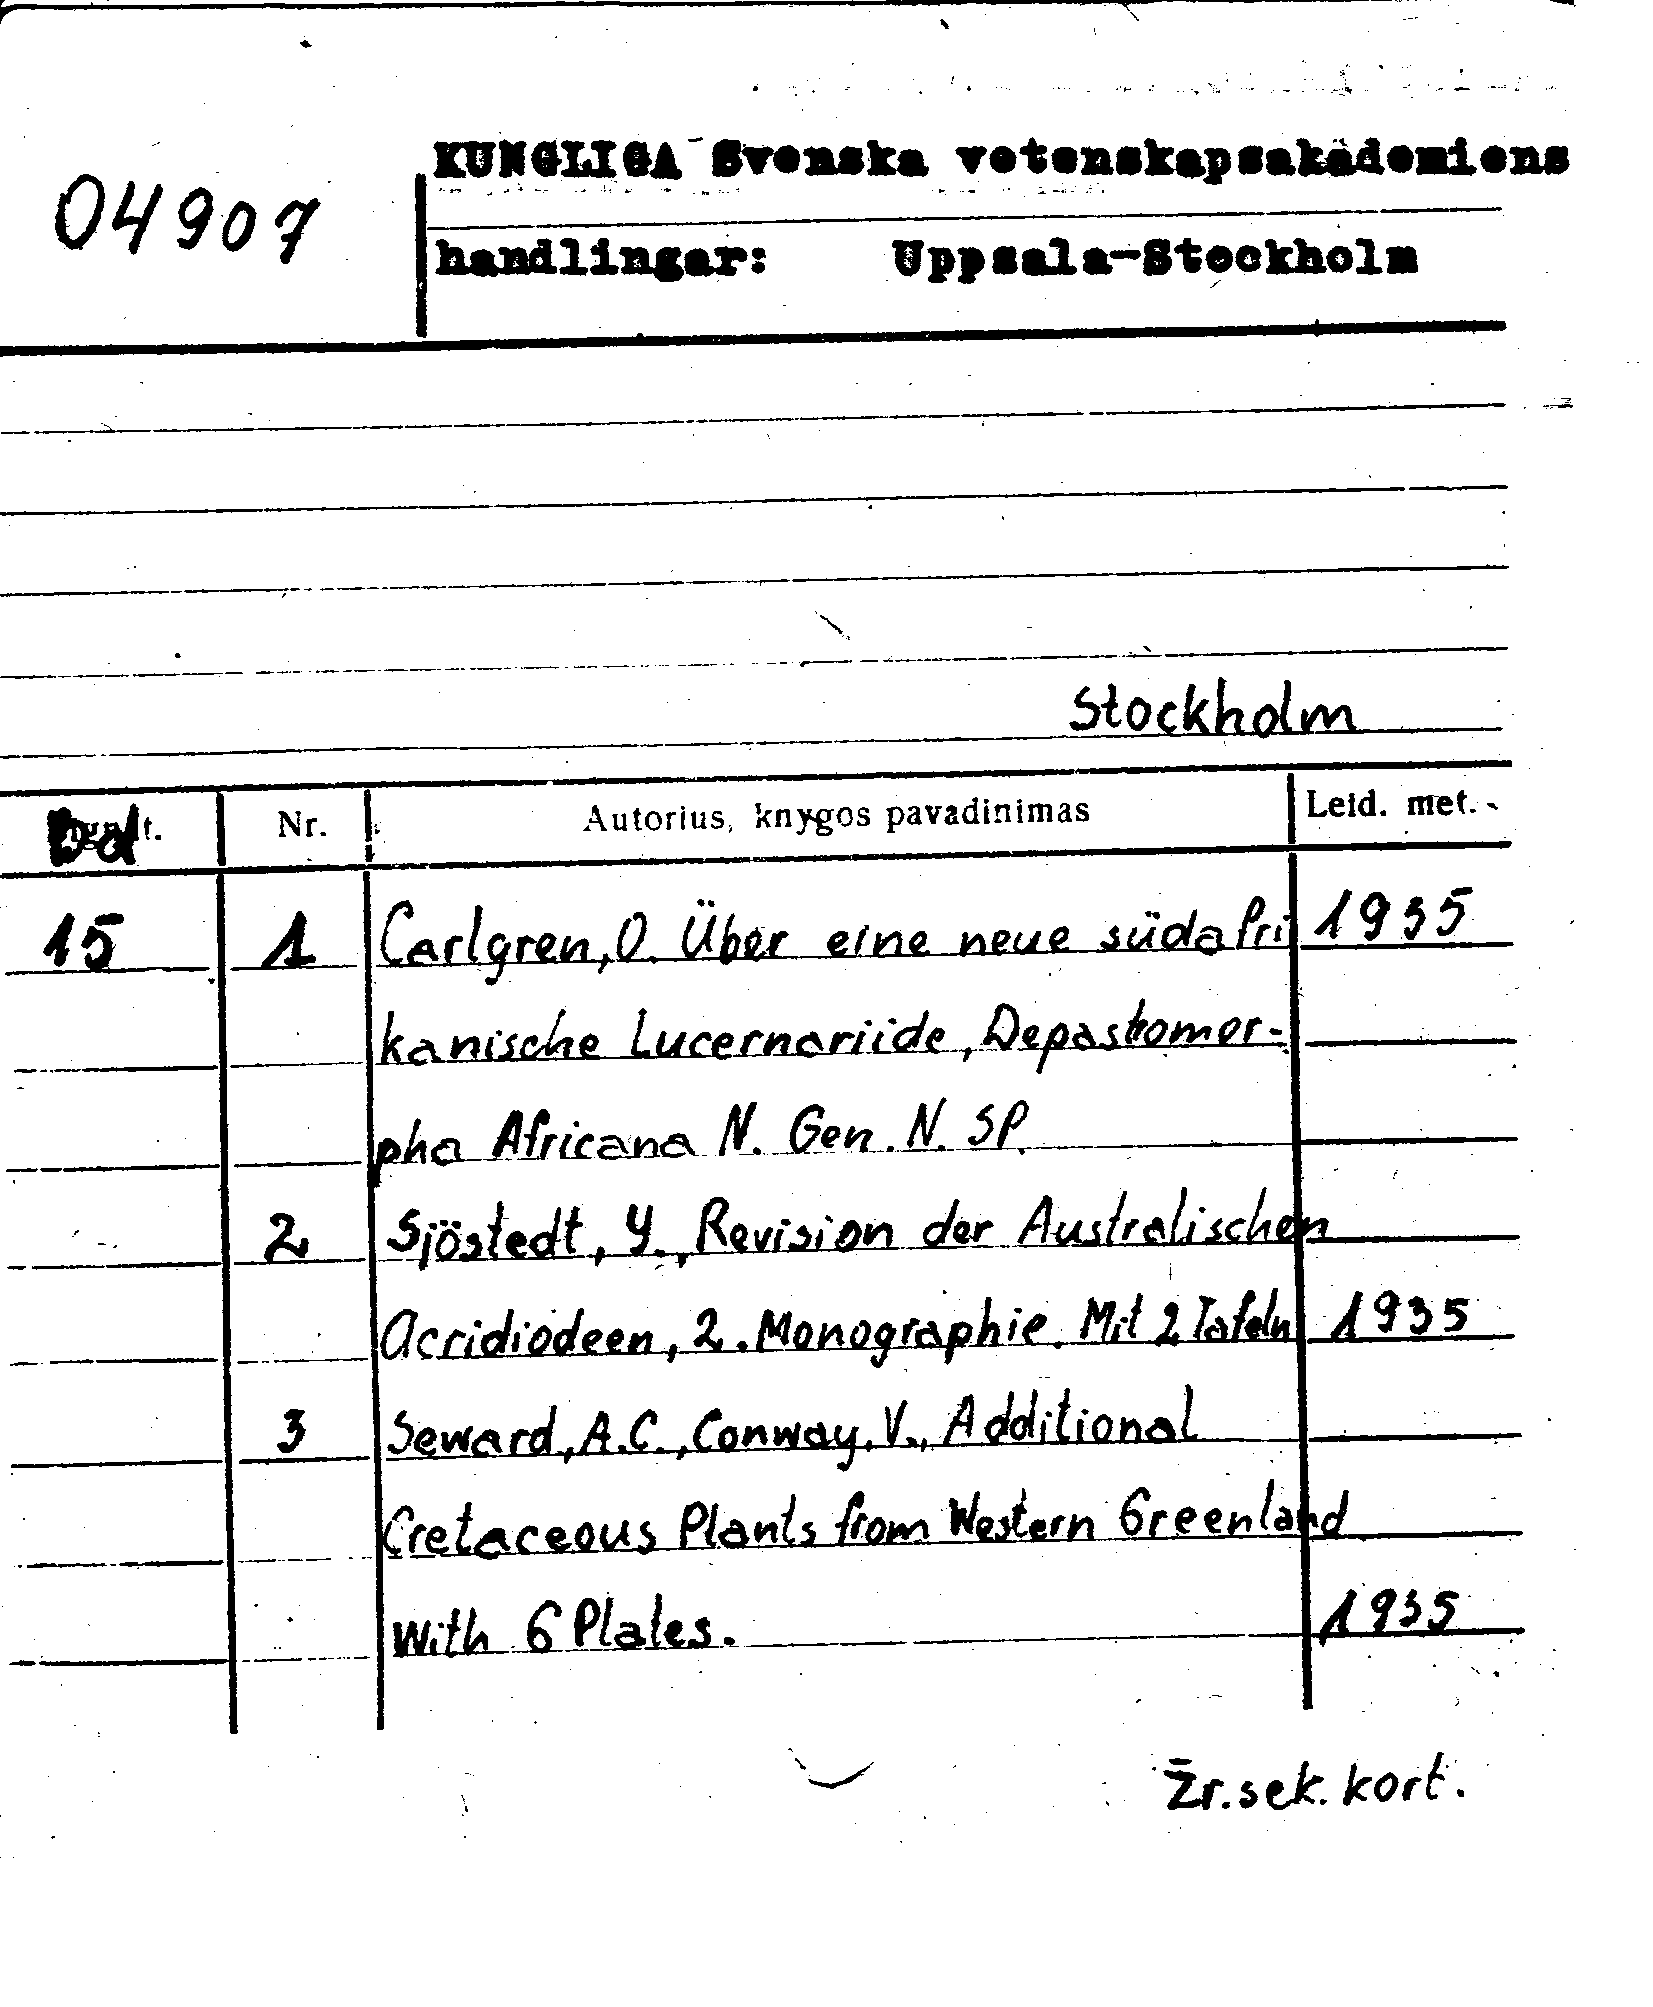 KUNGLIGA Svenska vetenskapsakademiens
04907
handlingar: Uppsala-Stockholm
Stockholm
Bd Nr. Autorius, knygos pavadinimas Leid. met.
15 1 Carlgren, O. Über eine neue südafri 1935
kanische Lucernariide, Depastromor-
pha Africana N. Gen. N. SP.
2 Sjöstedt, Y., Revision der Australischen
Acridiodeen, 2. Monographie. Mit 2 Tafeln 1935
3 Seward, A.C., Conway, V., Additional
Cretaceous Plants from Western Greenland
With 6 Plates. 1935
Žr. sek. kort.